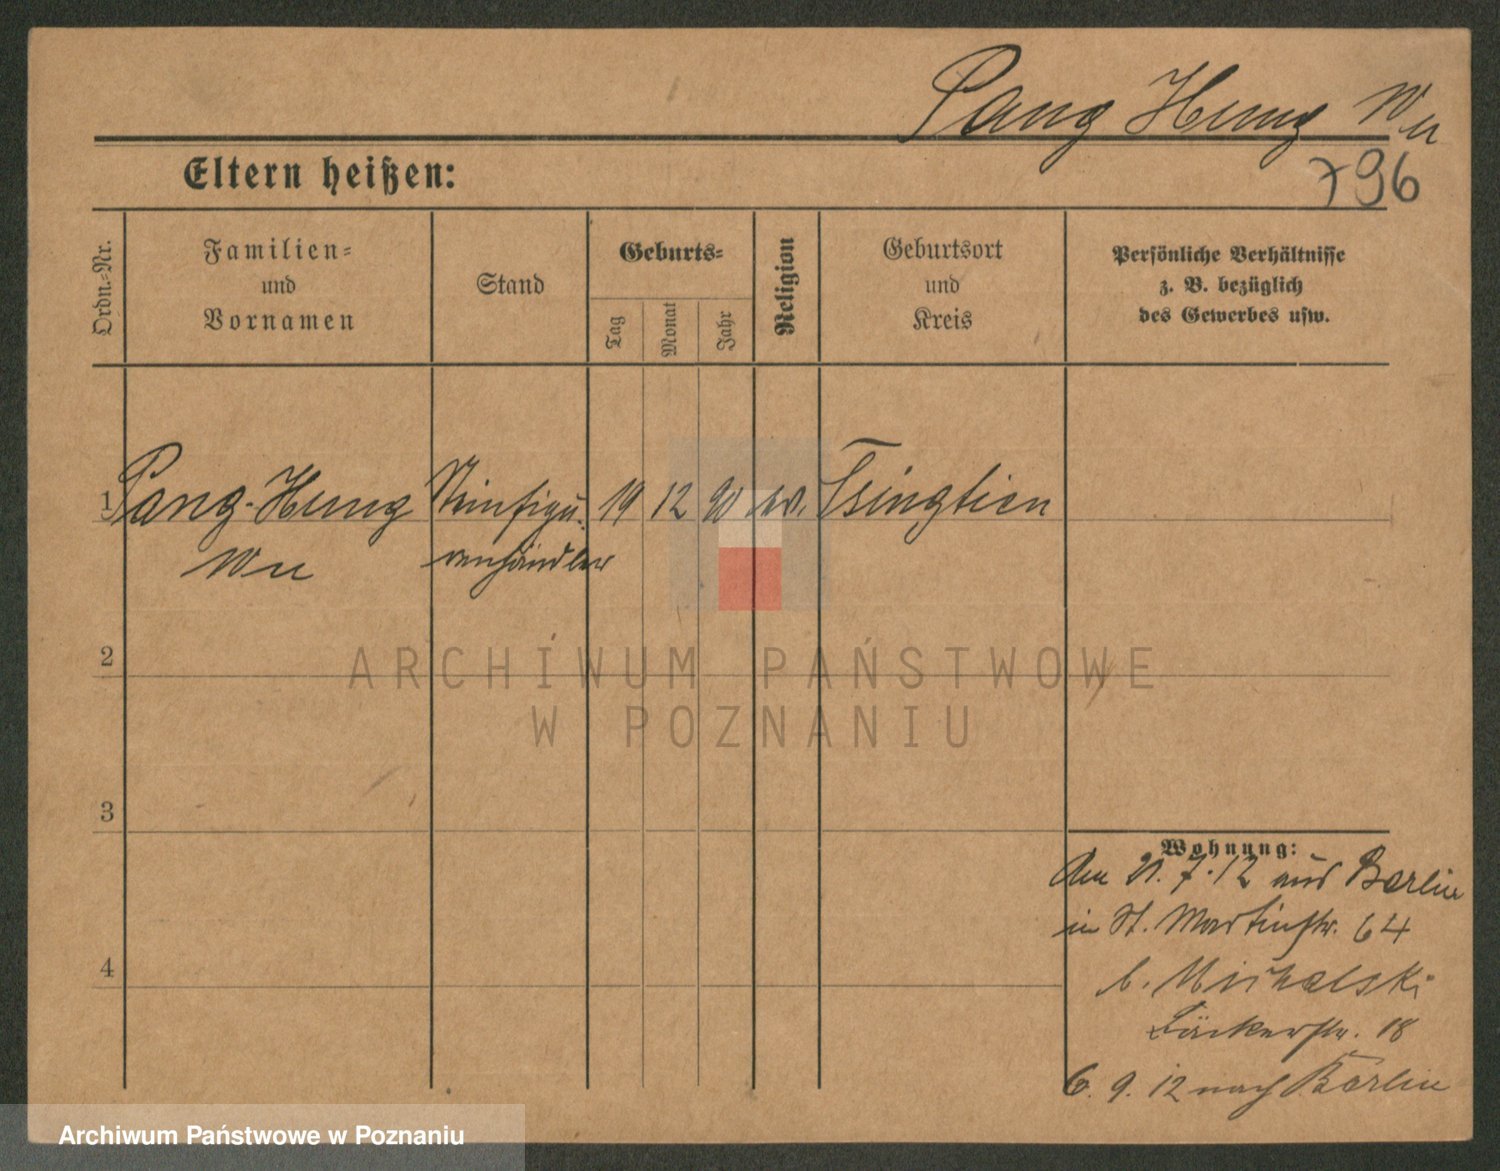 Pang Hung Wu
796
Eltern heißen:
Ordn.-Nr.
Familien-
und
Vornamen
Stand
Geburts-
Tag
Monat
Jahr
Religion
Geburtsort
und
Kreis
Persönliche Verhältnisse
z. B. bezüglich
des Gewerbes usw.
1 Pang-Hung Steinfigu- 19 12 90 ev. Tsingtien
Wu renhändler
2
3
4
Wohnung:
Am 21. 7. 12 aus Berlin
in St. Martinstr. 64
b. Michalski
Bäckerstr. 18
6. 9. 12 nach Berlin
ARCHIWUM PAŃSTWOWE
W POZNANIU
Archiwum Państwowe w Poznaniu